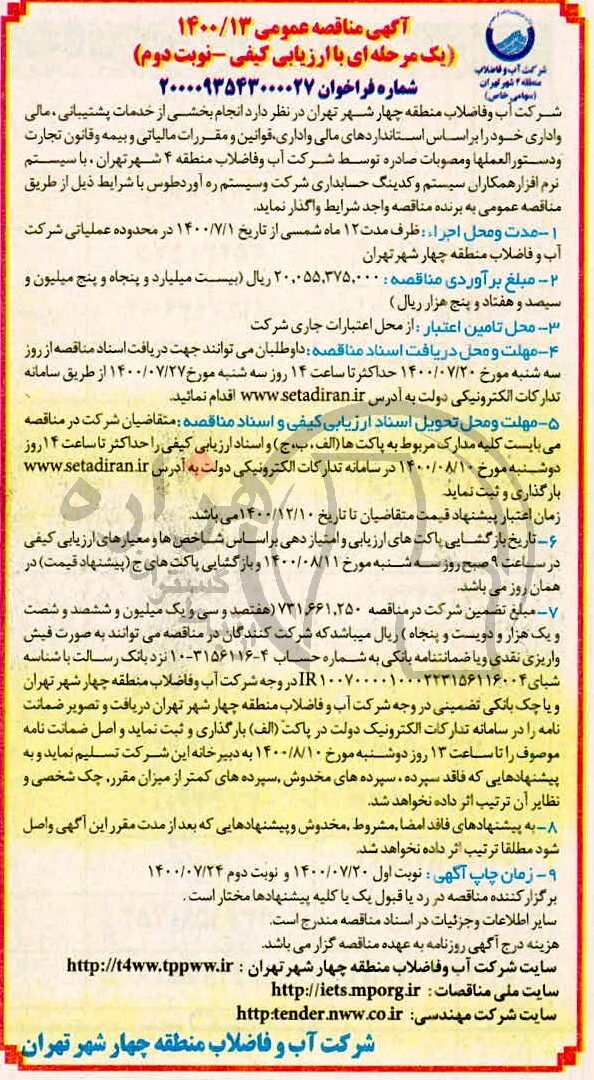 آگهی مناقصه عمومی ۱۴۰۰/۱۳
(یک مرحله ای با ارزیابی کیفی -نوبت دوم)
شرکت آب و فاضلاب
منطقه ۴ شهر تهران
(سهامی خاص)
شماره فراخوان ۲۰۰۰۰۹۳۵۴۳۰۰۰۰۲۷
شرکت آب وفاضلاب منطقه چهار شهر تهران در نظر دارد انجام بخشی از خدمات پشتیبانی ، مالی
واداری خود را بر اساس استانداردهای مالی واداری،قوانین و مقررات مالیاتی و بیمه وقانون تجارت
ودستورالعملها ومصوبات صادره توسط شرکت آب وفاضلاب منطقه ۴ شهر تهران ، با سیستم
نرم افزار همکاران سیستم وکدینگ حسابداری شرکت وسیستم ره آورد طوس با شرایط ذیل از طریق
مناقصه عمومی به برنده مناقصه واجد شرایط واگذار نماید.
۱-مدت ومحل اجراء :ظرف مدت ۱۲ ماه شمسی از تاریخ ۱۴۰۰/۷/۱ در محدوده عملیاتی شرکت
آب و فاضلاب منطقه چهار شهر تهران
۲- مبلغ برآوردی مناقصه : ۲۰,۰۵۵,۳۷۵,۰۰۰ ریال (بیست میلیارد و پنجاه و پنج میلیون و
سیصد و هفتاد و پنج هزار ریال )
۳- محل تامین اعتبار : از محل اعتبارات جاری شرکت
۴-مهلت و محل دریافت اسناد مناقصه :داوطلبان می توانند جهت دریافت اسناد مناقصه از روز
سه شنبه مورخ ۱۴۰۰/۰۷/۲۰ حداکثر تا ساعت ۱۴ روز سه شنبه مورخ ۱۴۰۰/۰۷/۲۷ از طریق سامانه
تدارکات الکترونیکی دولت به آدرس www.setadiran.ir اقدام نمائید.
۵-مهلت ومحل تحویل اسناد ارزیابی کیفی و اسناد مناقصه :متقاضیان شرکت در مناقصه
می بایست کلیه مدارک مربوط به پاکت ها (الف ، ب،ج) و اسناد ارزیابی کیفی را حداکثر تا ساعت ۱۴ روز
دوشنبه مورخ ۱۴۰۰/۰۸/۱۰ در سامانه تدارکات الکترونیکی دولت به آدرس www.setadiran.ir
بارگذاری و ثبت نماید.
زمان اعتبار پیشنهاد قیمت متقاضیان تا تاریخ ۱۴۰۰/۱۲/۱۰می باشد.
۶-تاریخ بازگشایی پاکت های ارزیابی و امتیاز دهی بر اساس شاخص ها و معیارهای ارزیابی کیفی
در ساعت ۹ صبح روز سه شنبه مورخ ۱۴۰۰/۰۸/۱۱ و بازگشایی پاکت های ج (پیشنهاد قیمت) در
همان روز می باشد.
۷-مبلغ تضمین شرکت در مناقصه ۷۳۱,۶۶۱,۲۵۰ (هفتصد و سی و یک میلیون و ششصد و شصت
و یک هزار و دویست و پنجاه ) ریال میباشد که شرکت کنندگان در مناقصه می توانند به صورت فیش
واریزی نقدی ویا ضمانتنامه بانکی به شماره حساب ۴-۳۱۵۶۱۱۶-۱۰ نزد بانک رسالت با شناسه
شبای IR۱۰۰۷۰۰۰۰۱۰۰۰۲۲۳۱۵۶۱۱۶۰۰۴ در وجه شرکت آب وفاضلاب منطقه چهار شهر تهران
و یا چک بانکی تضمینی در وجه شرکت آب و فاضلاب منطقه چهار شهر تهران دریافت و تصویر ضمانت
نامه را در سامانه تدارکات الکترونیک دولت در پاکت (الف) بارگذاری و ثبت نماید و اصل ضمانت نامه
موصوف را تا ساعت ۱۳ روز دوشنبه مورخ ۱۴۰۰/۸/۱۰ به دبیرخانه این شرکت تسلیم نماید و به
پیشنهادهایی که فاقد سپرده ، سپرده های مخدوش ,سپرده های کمتر از میزان مقرر, چک شخصی و
نظایر آن ترتیب اثر داده نخواهد شد.
۸-به پیشنهادهای فاقد امضا ,مشروط ,مخدوش و پیشنهادهایی که بعد از مدت مقرر این آگهی واصل
شود مطلقا ترتیب اثر داده نخواهد شد.
۹- زمان چاپ آگهی : نوبت اول ۱۴۰۰/۰۷/۲۰ و نوبت دوم ۱۴۰۰/۰۷/۲۴
برگزار کننده مناقصه در رد یا قبول یک یا کلیه پیشنهادها مختار است .
سایر اطلاعات وجزئیات در اسناد مناقصه مندرج است.
هزینه درج آگهی روزنامه به عهده مناقصه گزار می باشد.
سایت شرکت آب وفاضلاب منطقه چهار شهر تهران : http://t4ww.tppww.ir
سایت ملی مناقصات : http://iets.mporg.ir
سایت شرکت مهندسی: http:tender.nww.co.ir
شرکت آب و فاضلاب منطقه چهار شهر تهران